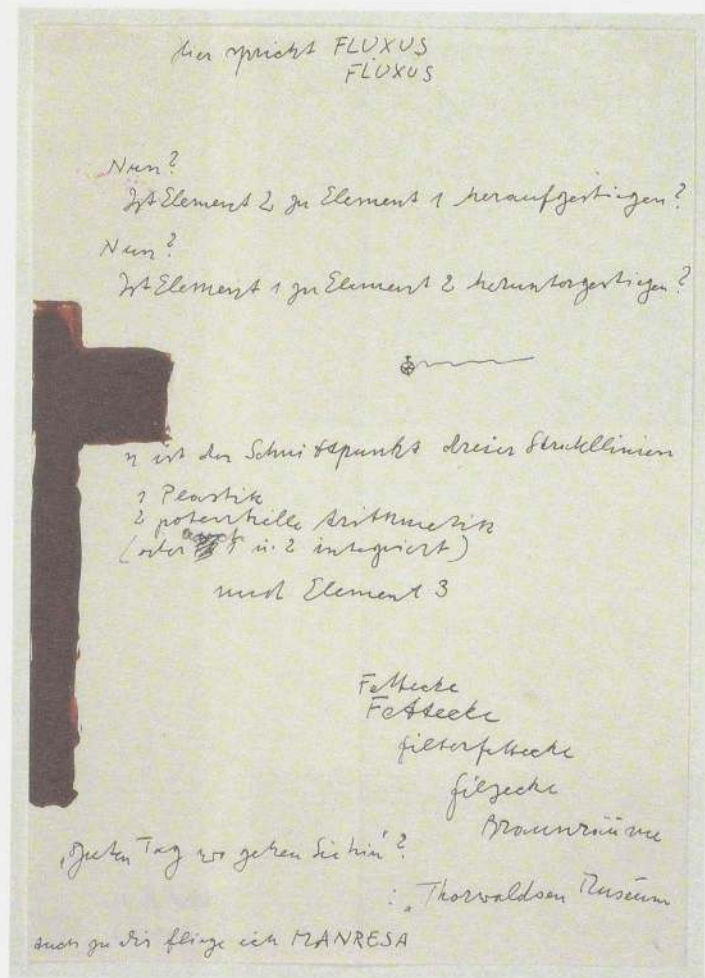 hier spricht FLUXUS
FLUXUS
Nun?
Ist Element 2 zu Element 1 heraufgestiegen?
Nun?
Ist Element 1 zu Element 2 heruntergestiegen?
n ist der Schnittpunkt dreier Strahllinien
1 Plastik
2 potentielle Arithmetik
(oder auch 1 u. 2 integriert)
und Element 3
Fettecke
Fettecke
filterfettecke
filzecke
Braunräume
„Guten Tag wo gehen Sie hin"?
: „Thorwaldsen Museum
auch zu dir fliege ich MANRESA